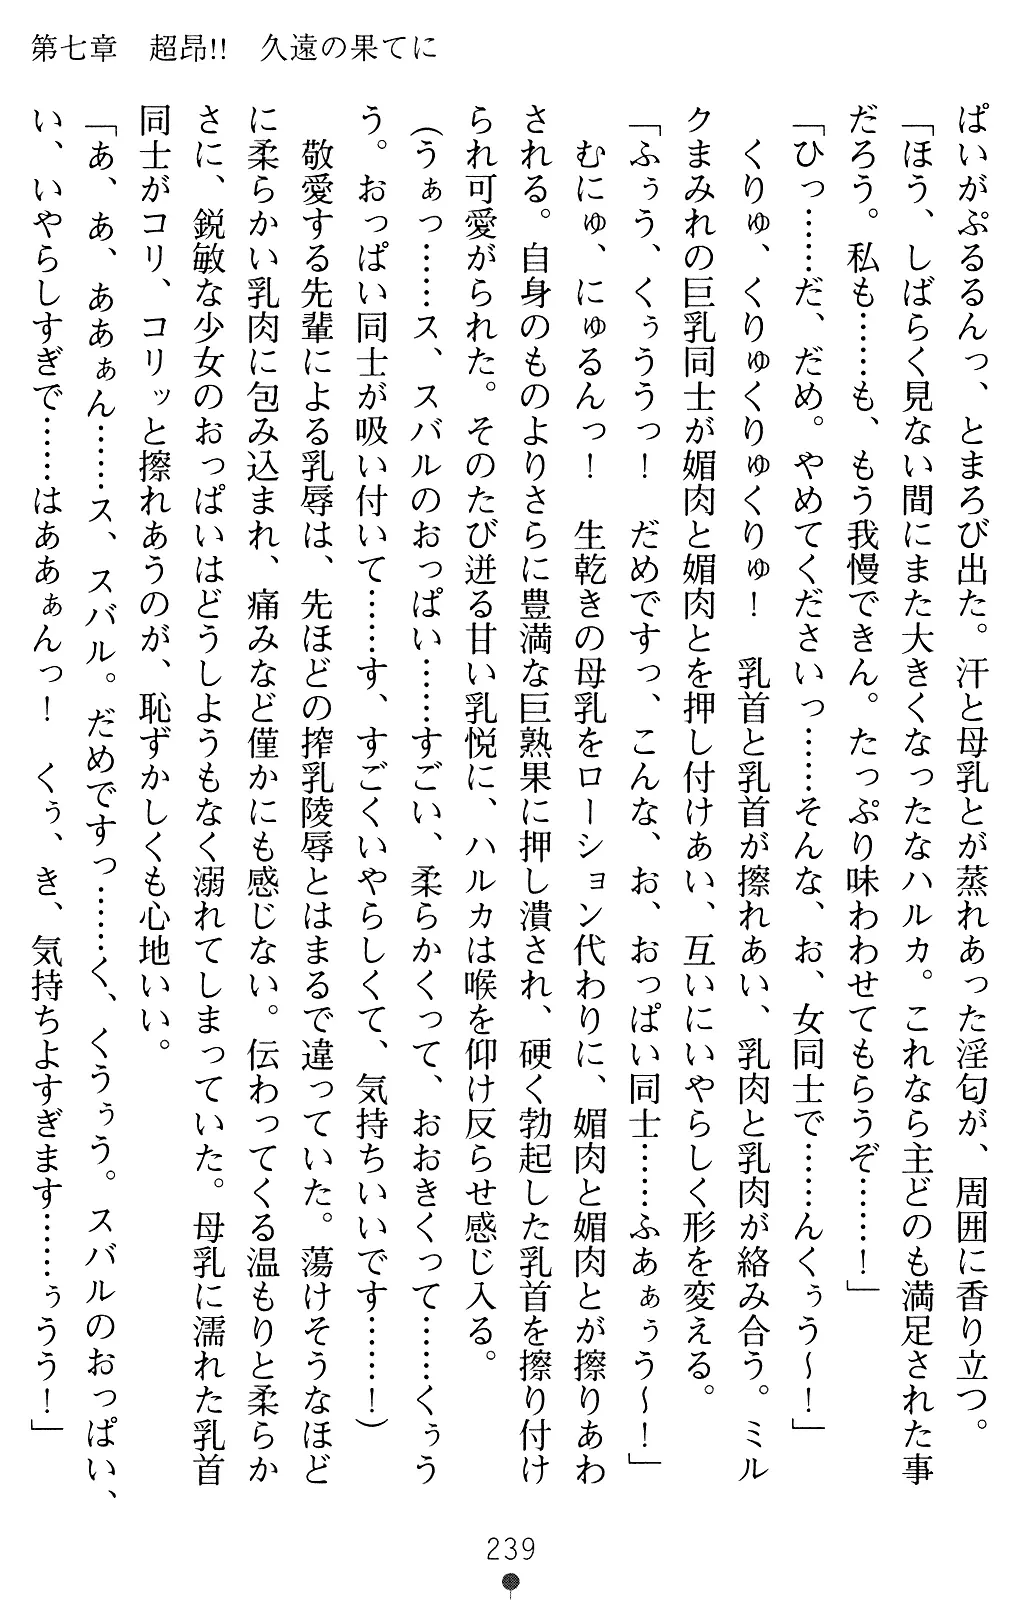 第七章　超昂!!　久遠の果てに
ぱいがぷるるんっ、とまろび出た。汗と母乳とが蒸れあった淫匂が、周囲に香り立つ。
「ほう、しばらく見ない間にまた大きくなったなハルカ。これなら主どのも満足された事
だろう。私も……も、もう我慢できん。たっぷり味わわせてもらうぞ……！」
「ひっ……だ、だめ。やめてくださいっ……そんな、お、女同士で……んくぅう～！」
　くりゅ、くりゅくりゅくりゅ！　乳首と乳首が擦れあい、乳肉と乳肉が絡み合う。ミル
クまみれの巨乳同士が媚肉と媚肉とを押し付けあい、互いにいやらしく形を変える。
「ふぅう、くぅううっ！　だめですっ、こんな、お、おっぱい同士……ふあぁぅう～！」
　むにゅ、にゅるんっ！　生乾きの母乳をローション代わりに、媚肉と媚肉とが擦りあわ
される。自身のものよりさらに豊満な巨熟果に押し潰され、硬く勃起した乳首を擦り付け
られ可愛がられた。そのたび迸る甘い乳悦に、ハルカは喉を仰け反らせ感じ入る。
（うぁっ……ス、スバルのおっぱい……すごい、柔らかくって、おおきくって……くぅう
う。おっぱい同士が吸い付いて……す、すごくいやらしくて、気持ちいいです……！）
　敬愛する先輩による乳辱は、先ほどの搾乳陵辱とはまるで違っていた。蕩けそうなほど
に柔らかい乳肉に包み込まれ、痛みなど僅かにも感じない。伝わってくる温もりと柔らか
さに、鋭敏な少女のおっぱいはどうしようもなく溺れてしまっていた。母乳に濡れた乳首
同士がコリ、コリッと擦れあうのが、恥ずかしくも心地いい。
「あ、あ、ああぁん……ス、スバル。だめですっ……く、くうぅう。スバルのおっぱい、
い、いやらしすぎで……はああぁんっ！　くぅ、き、気持ちよすぎます……ぅうう！」
239